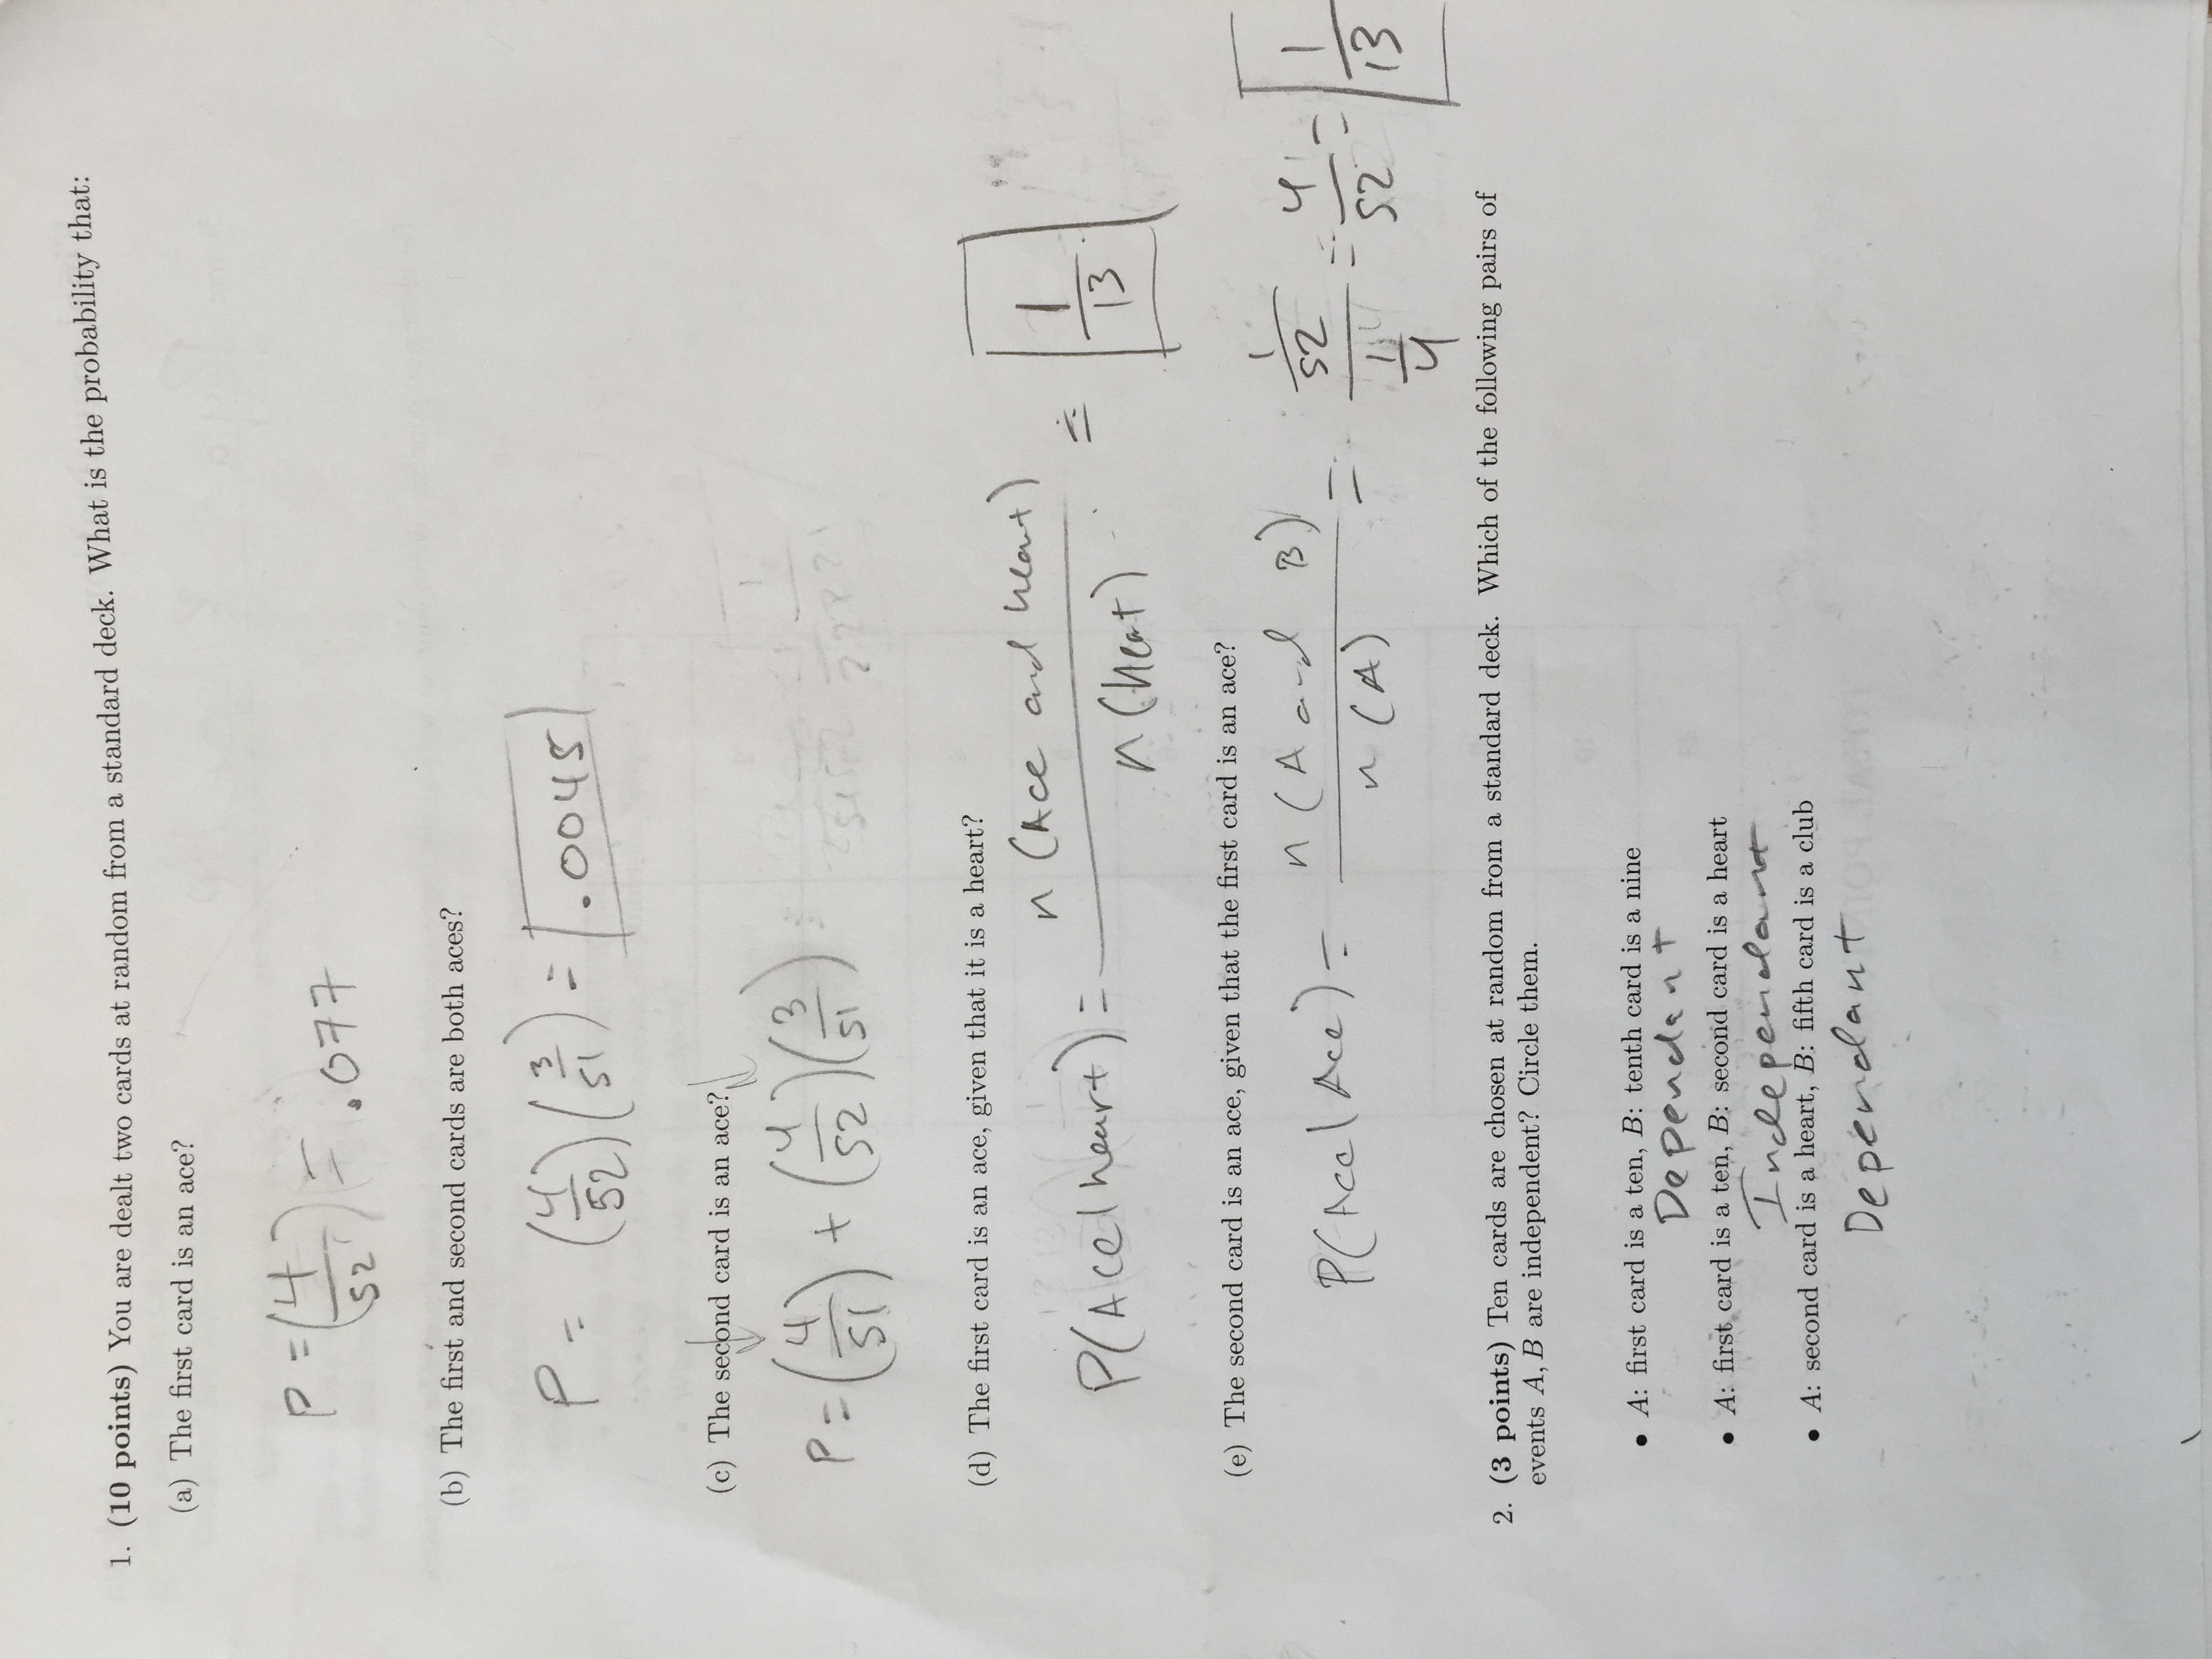 1. (10 points) You are dealt two cards at random from a standard deck. What is the probability that:
(a) The first card is an ace?
P = (4/52) = .077
(b) The first and second cards are both aces?
P = (4/52)(3/51) = .0045
(c) The second card is an ace?
P = (4/51) + (4/52)(3/51)
(d) The first card is an ace, given that it is a heart?
P(Ace|heart) = n(Ace and heart)/n(heart) = 1/13
(e) The second card is an ace, given that the first card is an ace?
P(Ace|Ace) = n(A and B)/n(A) = (1/52)/(1/4) = 4/52 = 1/13
2. (3 points) Ten cards are chosen at random from a standard deck. Which of the following pairs of
events A, B are independent? Circle them.
• A: first card is a ten, B: tenth card is a nine
Dependant
• A: first card is a ten, B: second card is a heart
Independant
• A: second card is a heart, B: fifth card is a club
Dependant